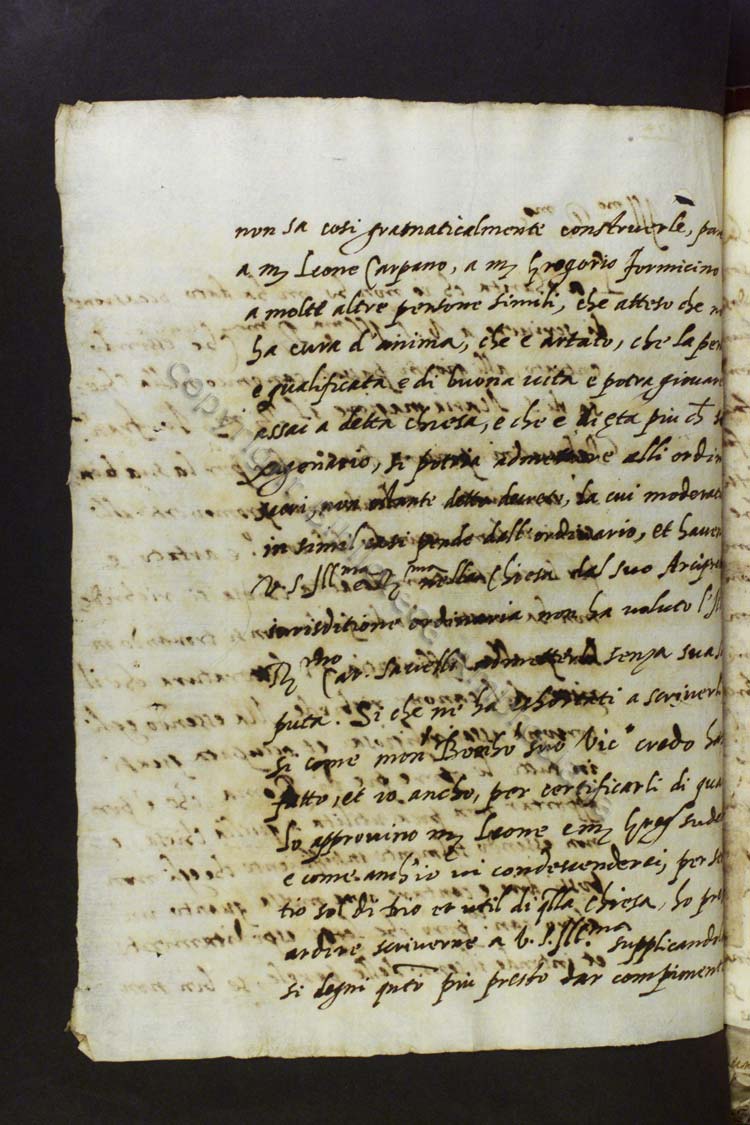 non sa cosi gramaticalmente construerle, par
a mr Leone Carpano, a mr Gregorio Formicino
a molte altre persone simili, che atteso che n
ha cura d'anima, che è artato, che la per
è qualificata e di buona vita e potra giovar
assai a detta chiesa, e che è di età piu ch se
xagenario, si potria admettere alli ordin
non ostante detto decreto, la cui moderat
in simil casi pende dall'ordinario, et haven
V. S. Illma e Rma nella Chiesa dal suo Arcipre
iurisditione ordinaria non ha voluto l'Il
Rmo Car. Savelli admetterlo senza sua sa
puta. Si che m' ha exhortati a scriverli
si come monr suo Vico credo ha
fatto, et io ancho, per certificarli di qua
lo approvino mr Leone e mr Greg sude
e come anch'io vi condescenderei, per se
tio sol di Dio et util di qlla chiesa, ho pre
ardire scriverne a V. S. Illma supplicando
si degni qnto più presto dar compiment